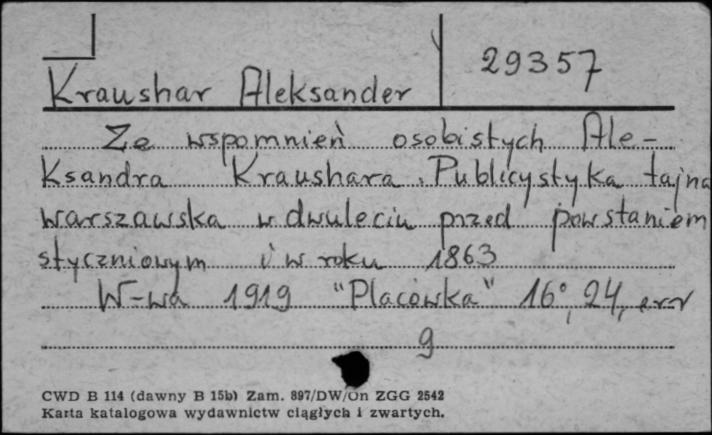 29357
Kraushar Aleksander
Ze wspomnień osobistych Ale-
ksandra Kraushara. Publicystyka tajna
warszawska w dwuleciu przed powstaniem
styczniowym i w roku 1863
W-wa 1919 "Placówka" 16°, 24,
9
CWD B 114 (dawny B 15b) Zam. 897/DW/On ZGG 2542
Karta katalogowa wydawnictw ciągłych i zwartych.